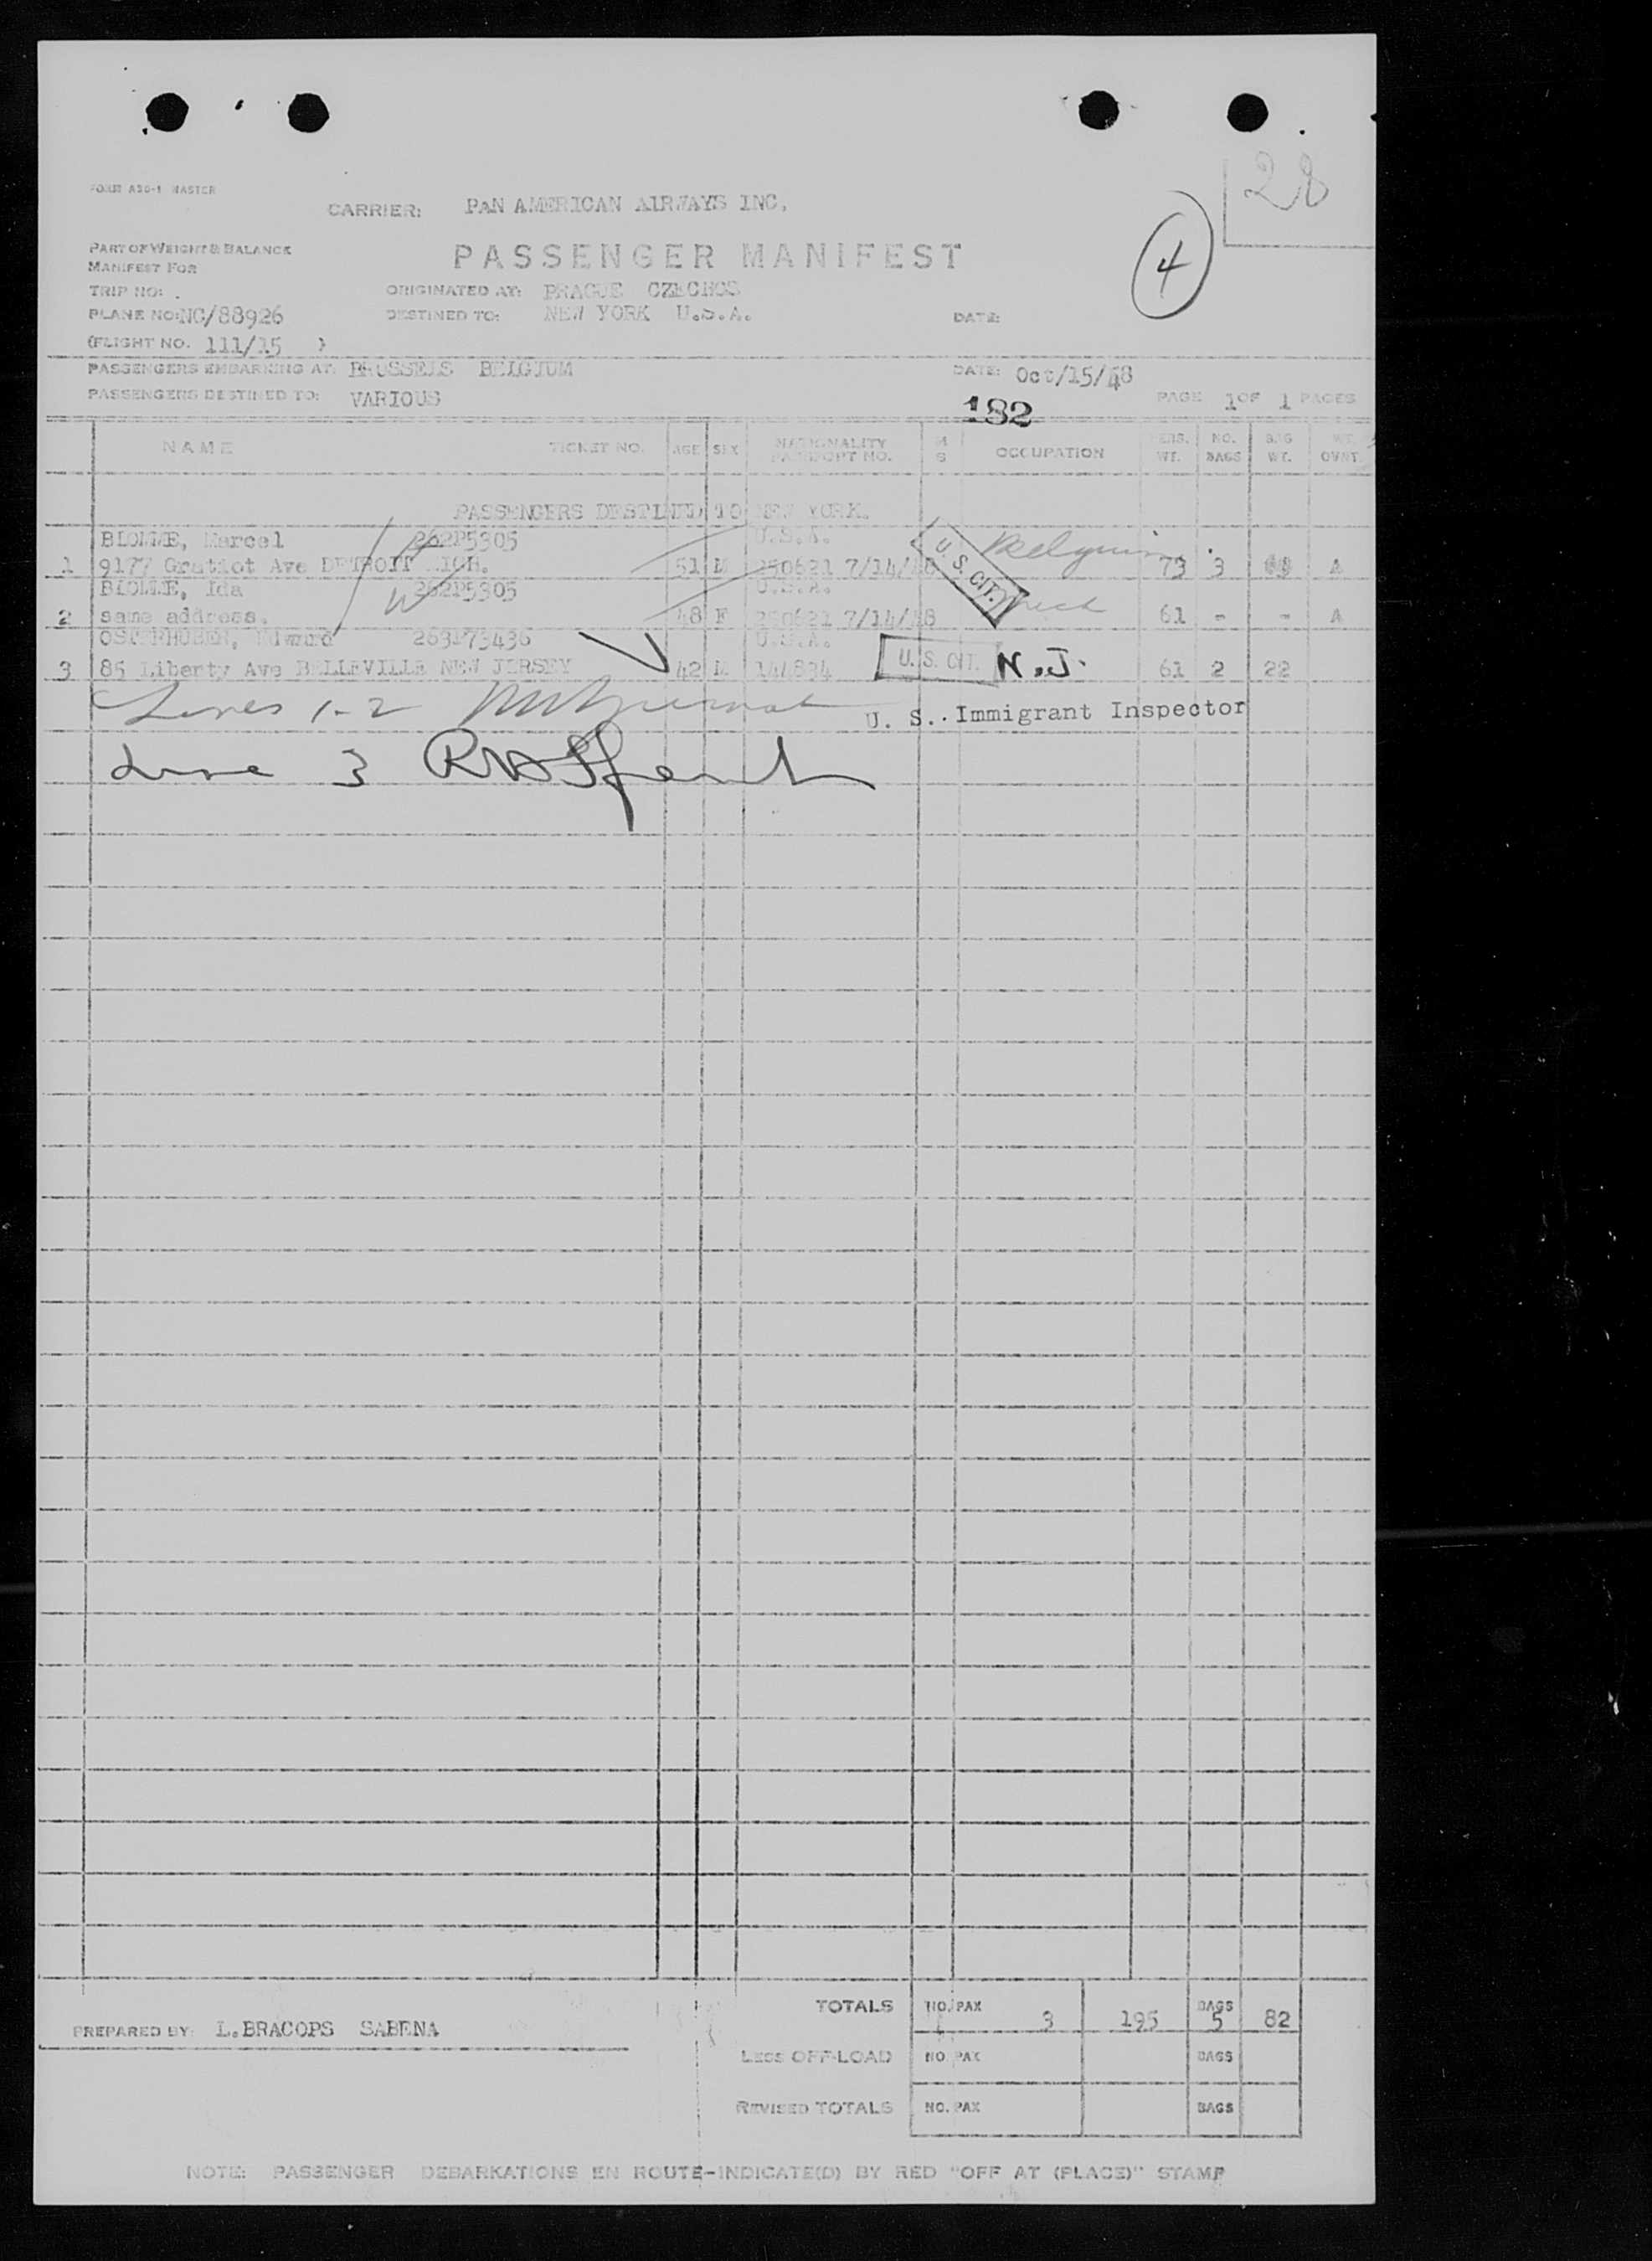 28
FORM A30-1 MASTER
CARRIER: PAN AMERICAN AIRWAYS INC.
4
PART OF WEIGHT & BALANCE
MANIFEST FOR
PASSENGER MANIFEST
TRIP NO:
ORIGINATED AT: PRAGUE CZECHOS
PLANE NO: NC/88926
DESTINED TO: NEW YORK U.S.A.
DATE:
(FLIGHT NO. 111/15 )
PASSENGERS EMBARKING AT: BRUSSELS BELGIUM
DATE: Oct/15/48
PASSENGERS DESTINED TO: VARIOUS
182
PAGE 1 OF 1 PAGES
NAME TICKET NO. AGE SEX NATIONALITY PASSPORT NO. M S OCCUPATION PERS. WT. NO. BAGS BAG WT. WT. OVNT.
PASSENGERS DESTINED TO NEW YORK.
Marcel 262P5305 U.S.A.
1 9177 Gratiot Ave DETROIT MICH. 51 M 7/14/48 U. S. CIT. 73 3 A
Ida 262P5305 U.S.A.
2 same address. 48 F 7/14/48 61 - - A
OSTERHUBER, Edward 263P73436 U.S.A.
3 85 Liberty Ave BELLEVILLE NEW JERSEY 42 M 144834 U. S. CIT. N.J. 61 2 22
Lines 1-2
U. S.. Immigrant Inspector
Line 3
TOTALS NO. PAX 3 195 BAGS 5 82
PREPARED BY: L.BRACOPS SABENA
LESS OFF-LOAD NO. PAX BAGS
REVISED TOTALS NO. PAX BAGS
NOTE: PASSENGER DEBARKATIONS EN ROUTE-INDICATE(D) BY RED "OFF AT (PLACE)" STAMP